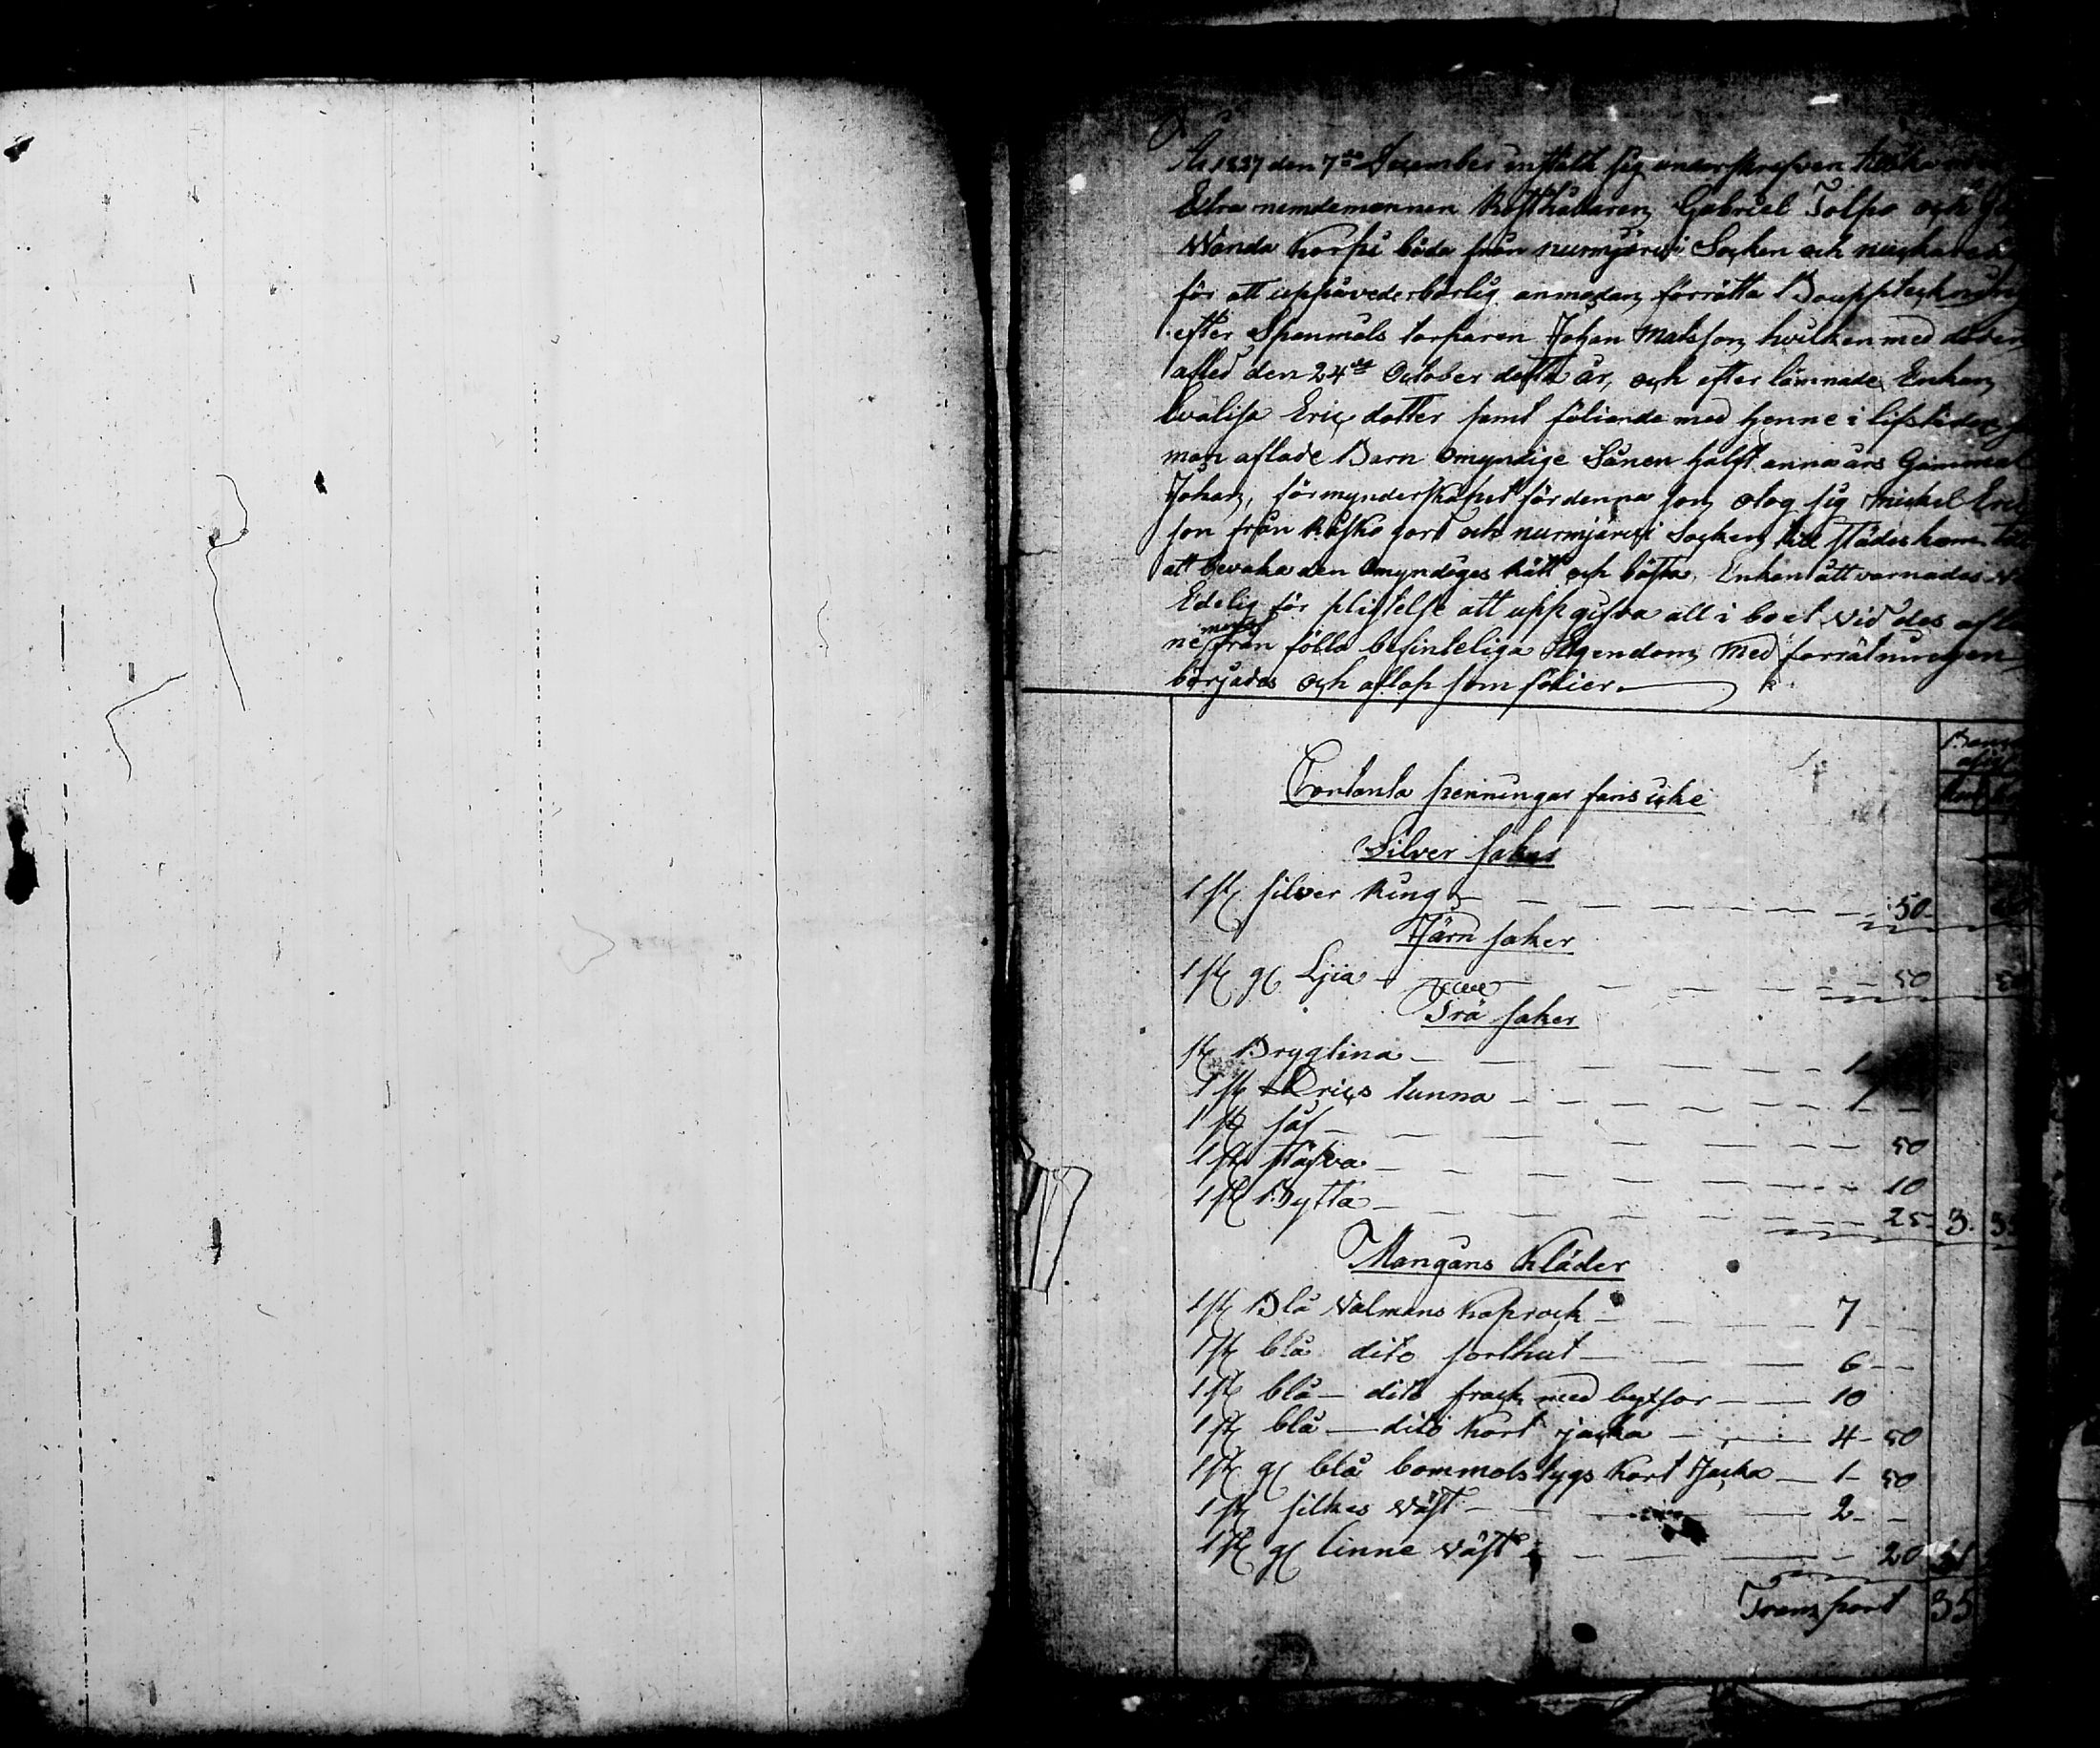 År 1837 den 7de December instält sig underskrefven
Extra nemdemannen Rusthållaren Gabriel Tolpo och
Wanda Korpi båda från nurmijärvi Socken och
för att uppå vederbörlig anmodan förrätta Bouppteckning
efter Spanmåls torparen Johan Matsson, hvilken med döden
afled den 24de October detta år, och efter lämnade Enkan
Evalisa Erics dotter samt föliande med henne i lifstiden
man aflade Barn omyndige Sånen halft annas års Gammal
Johan, förmynderskapet för denna son otog sig Mickel Eric
son från Rusko gord och nurmijärvi Socken, till städes kom
att bevaka den Omyndiges Rätt och bästa, Enkan åttvarnades
Edelig för plistelse att uppgifva all i boet vid des
ne från fölla befinteliga Egendom, Med förrätningen
börjades och aflop som följer
Contanta penningar fans icke
Silver saker
1 st silver Ring 50
Järn saker
1 st gl Ljia 50
Trä saker
st Brygtina 1
1 st Drics tunna 1
1 st sås 50
1 st stäfva 10
1 st Bytta 25 3.
Mangåns Kläder
1 st Blå Valmans kaprock 7
1 st blå dito sorthut 6
1 st blå dito frack med bytsor 10
1 st blå dito kort jacka 4 50
1 st gl blå bommolstygs kort Jacka 1 50
1 st silkes väst 2
1 st gl linne väst 20 31
Transport 35